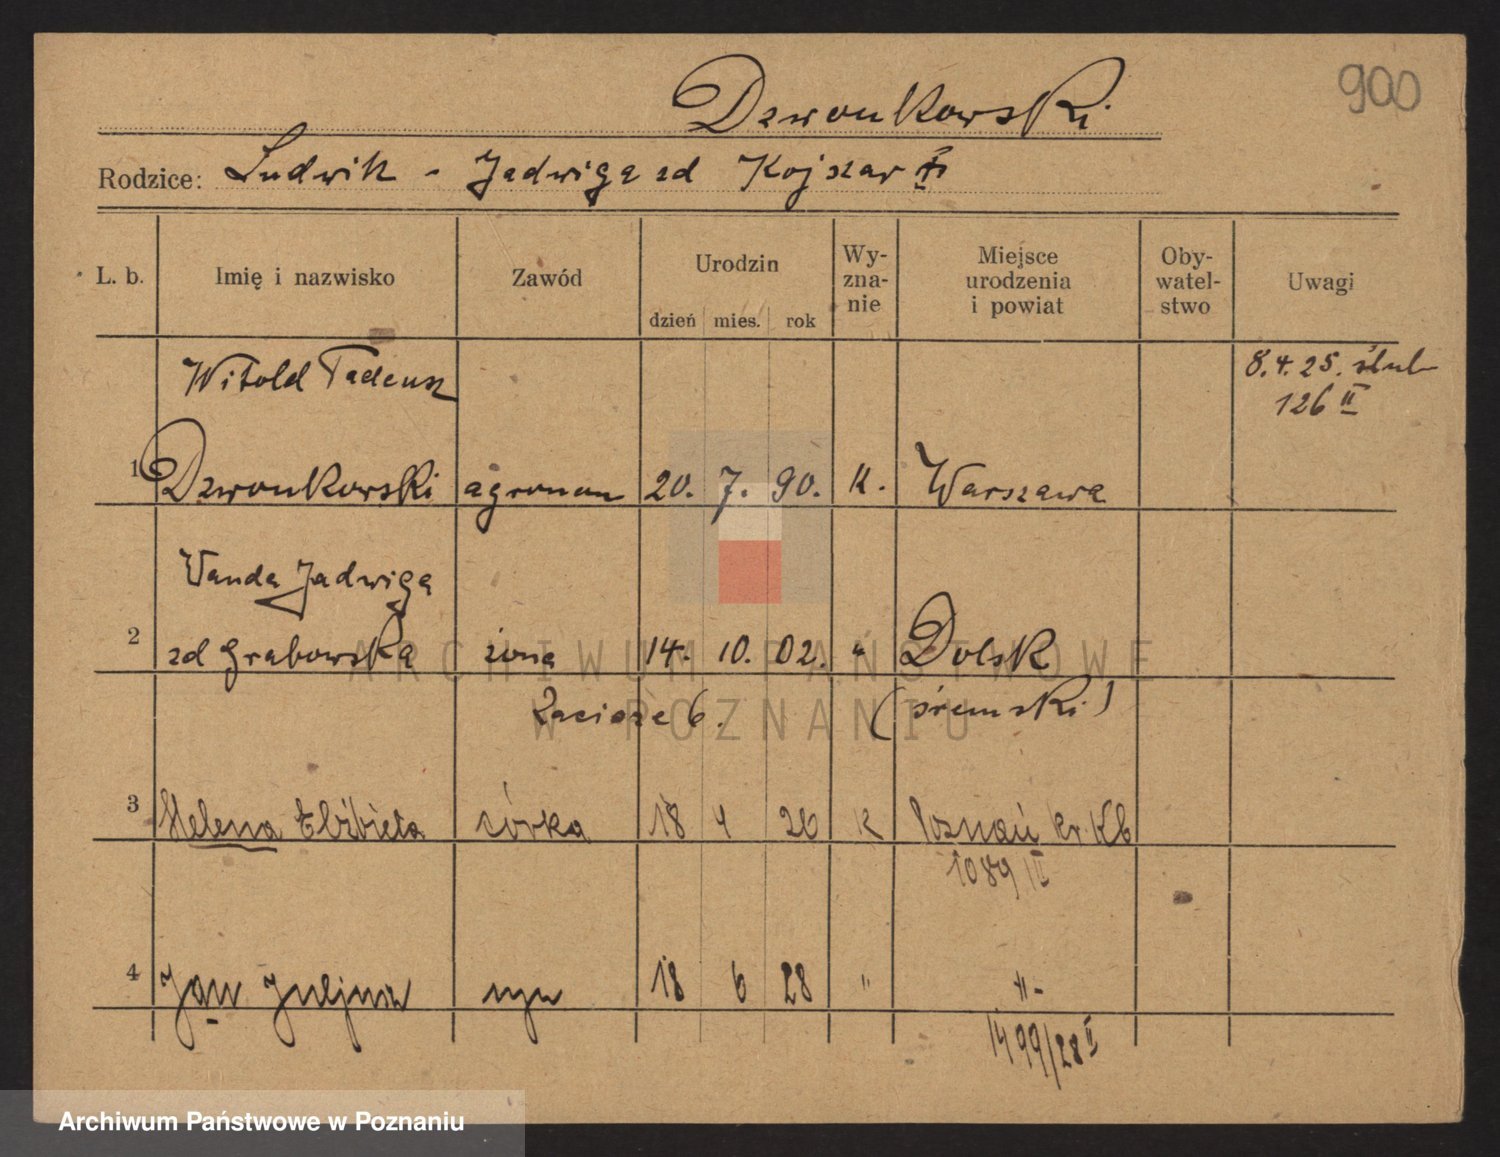 900
Dzwonkowski
Rodzice: Ludwik - Jadwiga zd Kojszar
L. b. Imię i nazwisko Zawód Urodzin dzień mies. rok Wy-zna-nie Miejsce urodzenia i powiat Oby-watel-stwo Uwagi
Witold Tadeusz 8.4.25. ślub
126 II
1 Dzwonkowski agronom 20. 7. 90. K. Warszawa
Wanda Jadwiga
2 zd Grabowska żona 14. 10. 02. " Dolsk
Zacisze 6. (śremski)
3 Helena Elżbieta córka 18 4 26 K Poznań kr. Kb
1089 II
4 Jan Juljusz syn 18 6 28 " -"-
1499/28 II
ARCHIWUM PAŃSTWOWE
W POZNANIU
Archiwum Państwowe w Poznaniu